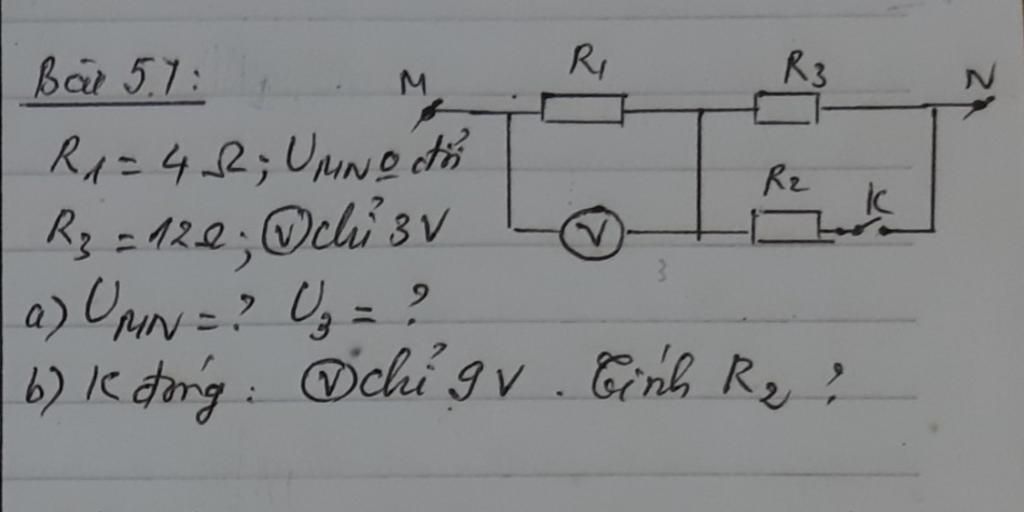 Bài 5.1:
R1 = 4 Ω; UMN o đổi
R3 = 12 Ω; V chỉ 3V
a) UMN = ? U3 = ?
b) K đóng: V chỉ 9V. Tính R2?
M R1 R3 N
V R2 K
3